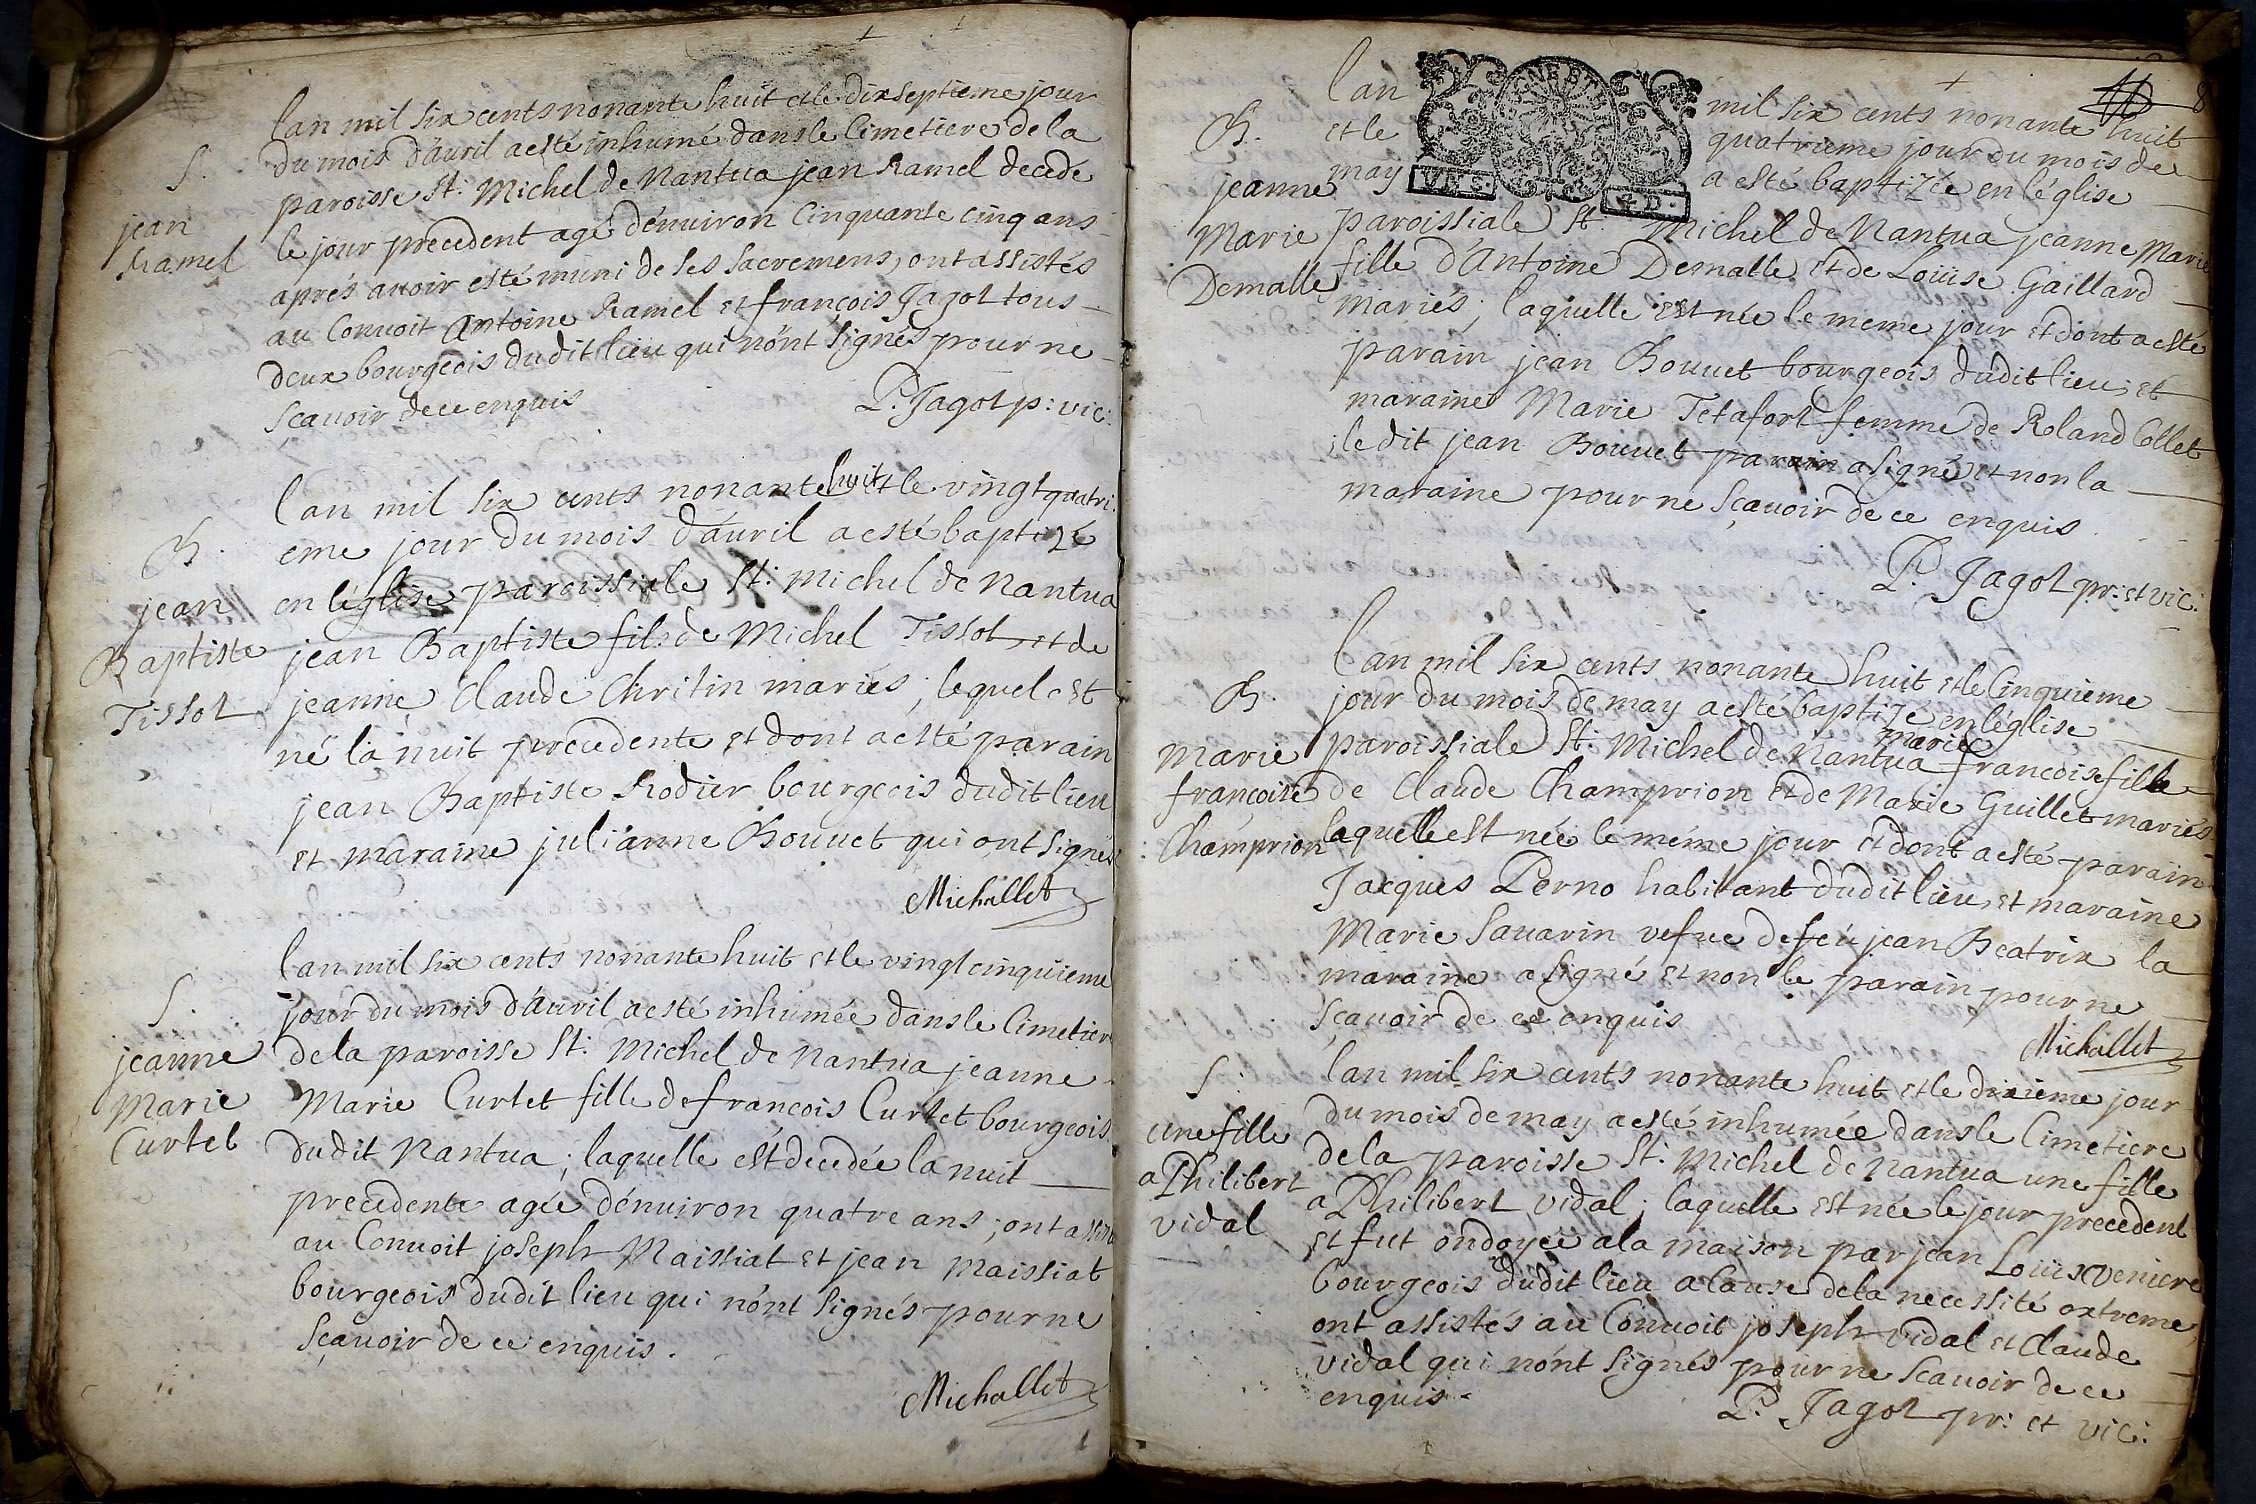 S.
jean
Ramel
lan mil six cents nonante huit et le dixseptieme jour
du mois d'auril a esté inhumé dans le Cimetiere de la
paroisse St. Michel de Nantua jean Ramel decedé
le jour precedent agé d'énuiron Cinquante cinq ans
aprés auoir esté muni de ses sacremens, ont assistés
au Conuoit Antoine Ramel et françois Jagot tous
deux bourgeois dudit lieu qui n'ont signés pour ne
sçauoir de ce enquis
P. Jagot p: vic:
B.
jean
Baptiste
Tissot
lan mil six cents nonante huit et le vingt quatri
eme jour du mois d'auril a esté baptizé
en léglise paroissiale St: Michel de Nantua
jean Baptiste fils de Michel Tissot et de
jeanne Claude Chritin mariés; lequel est
né la nuit precedente et dont a esté parain
jean Baptiste Rodier bourgeois dudit lieu
et maraine julianne Bouuet qui ont signés
Michallet
S.
jeanne
Marie
Curtet
lan mil six cents nonante huit et le vingt cinquieme
jour du mois d'auril a esté inhumée dans le Cimetiere
de la paroisse St: Michel de Nantua jeanne
Marie Curtet fille de françois Curtet bourgeois
dudit Nantua; laquelle est decedée la nuit
precedente agée d'énuiron quatre ans; ont assistés
au Conuoit joseph Maissiat et jean Maissiat
bourgeois dudit lieu qui n'ont signés pour ne
sçauoir de ce enquis.
Michallet
8
B.
jeanne
Marie
Demalle
lan mil six cents nonante huit
et le quatrieme jour du mois de
may a esté baptizée en léglise
paroissiale St. Michel de Nantua jeanne Marie
fille d'Antoine Demalle et de Louise Gaillard
mariés; laquelle est née le meme jour et dont a esté
parain jean Bouuet bourgeois dudit lieu, et
maraine Marie Tetafort femme de Roland Collet
; le dit jean Bouuet parain a signé et non la
maraine pour ne sçauoir de ce enquis
P. Jagot pr: et vic:
B.
Marie
françoise
Champrion
lan mil six cents nonante huit et le Cinquieme
jour du mois de may a esté baptizé en léglise
paroissiale St: Michel de Nantua marie françoise fille
de Claude Champrion et de Marie Guillet mariés
laquelle est née le méme jour et dont a esté parain
Jacques Perno habitant dudit lieu, et maraine
Marie Sauarin vefue de feu jean Beatrix la
maraine a signé et non le parain pour ne
sçauoir de ce enquis
Michallet
S.
une fille
a Philibert
vidal
lan mil six cents nonante huit et le dixieme jour
du mois de may a esté inhumée dans le Cimetiere
de la paroisse St. Michel de Nantua une fille
a Philibert vidal; laquelle est née le jour precedent
et fut ondoyée a la maison par jean Louis veniere
bourgeois dudit lieu a Cause de la necessité extreme,
ont assistés au Conuoit joseph vidal et Claude
vidal qui n'ont signés pour ne scauoir de ce
enquis.
P. Jagot pr: et vic: